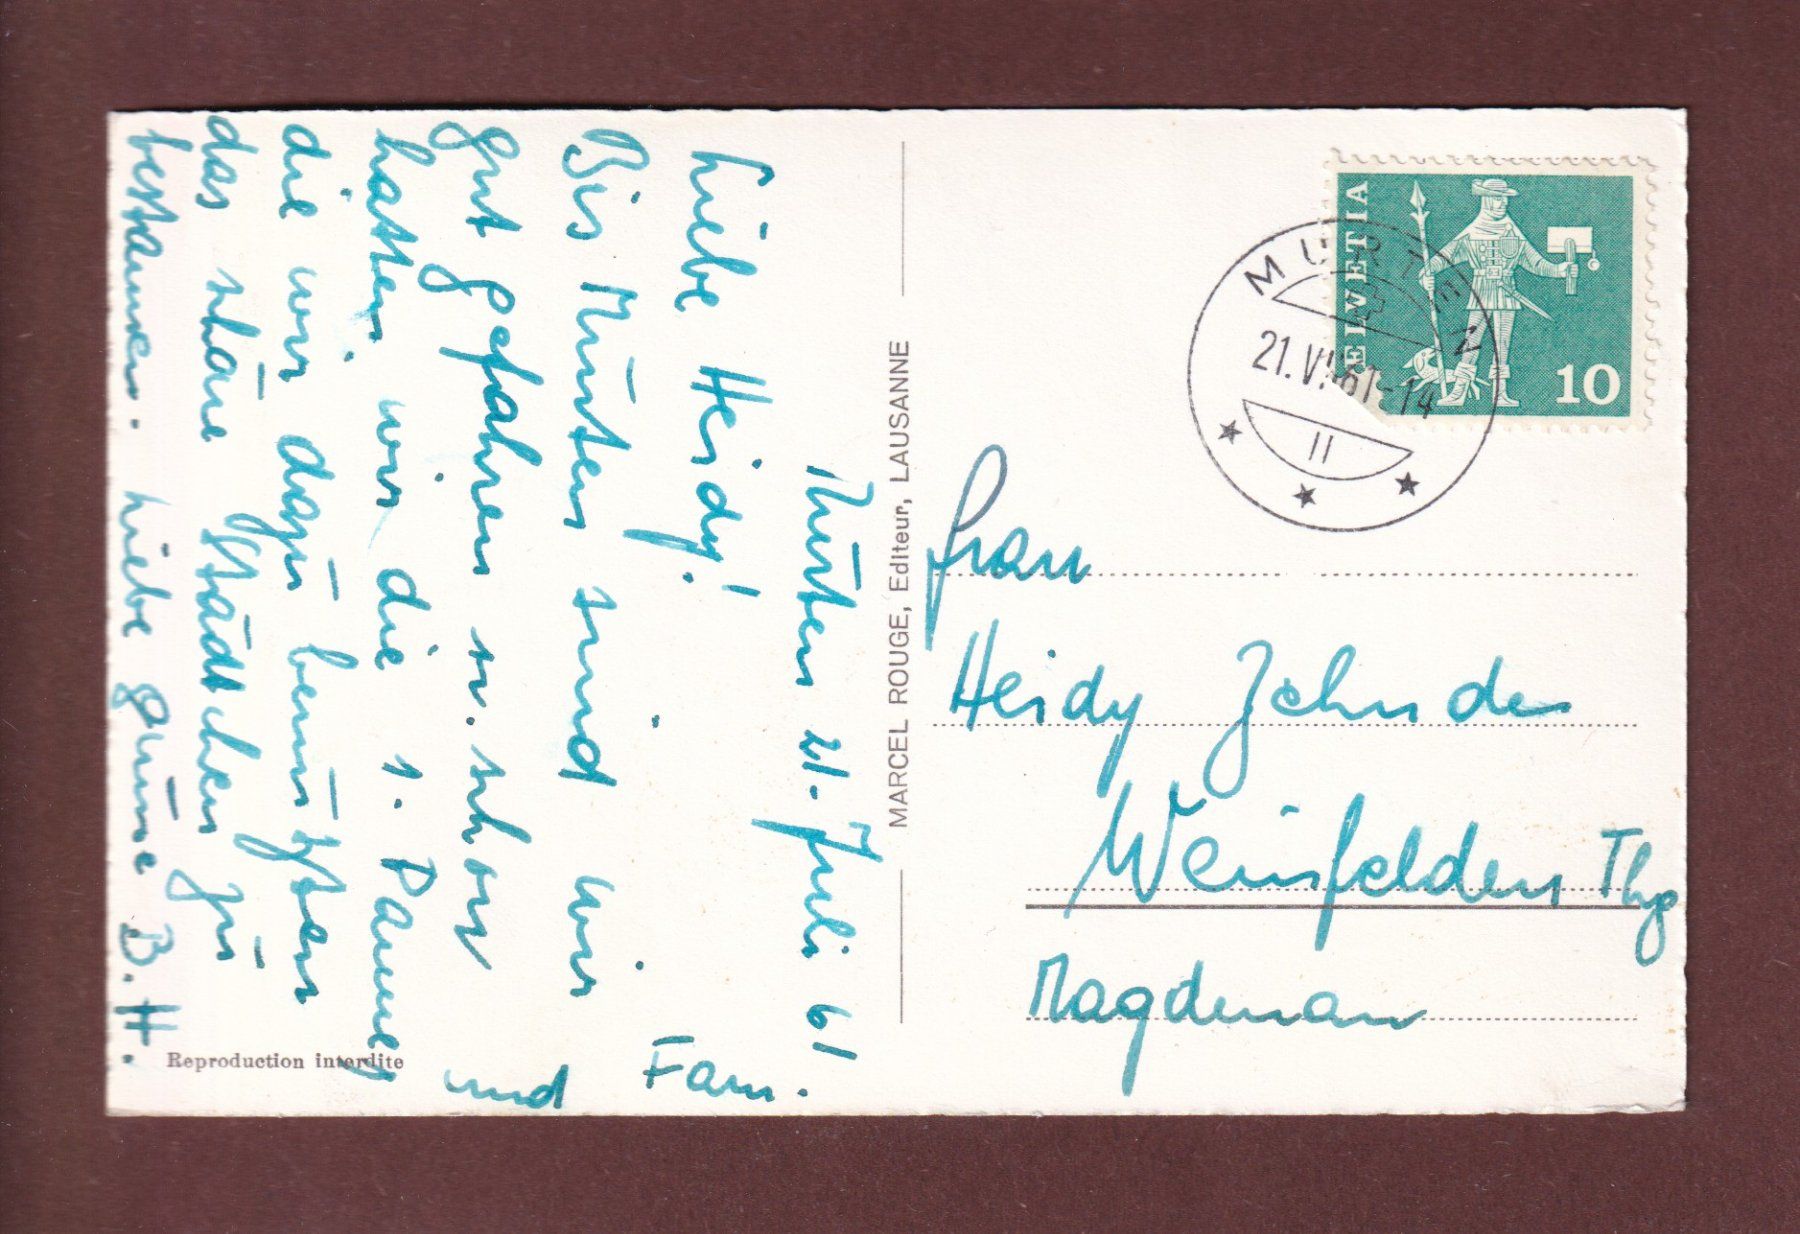 Murten 21. Juli 61
Liebe Heidy!
Bis Murten sind wir
gut gefahren u. schon
hatten wir die 1. Panne
die wir dazu benützten
das schöne Städtchen zu
bestaunen. Liebe Grüsse B. H.
und Fam.
Reproduction interdite
MARCEL ROUGE, Editeur, LAUSANNE
HELVETIA
10
MURTEN
21. VII 61-14
11
Frau
Heidy Zehnder
Weinfelden Thg
Magdenau